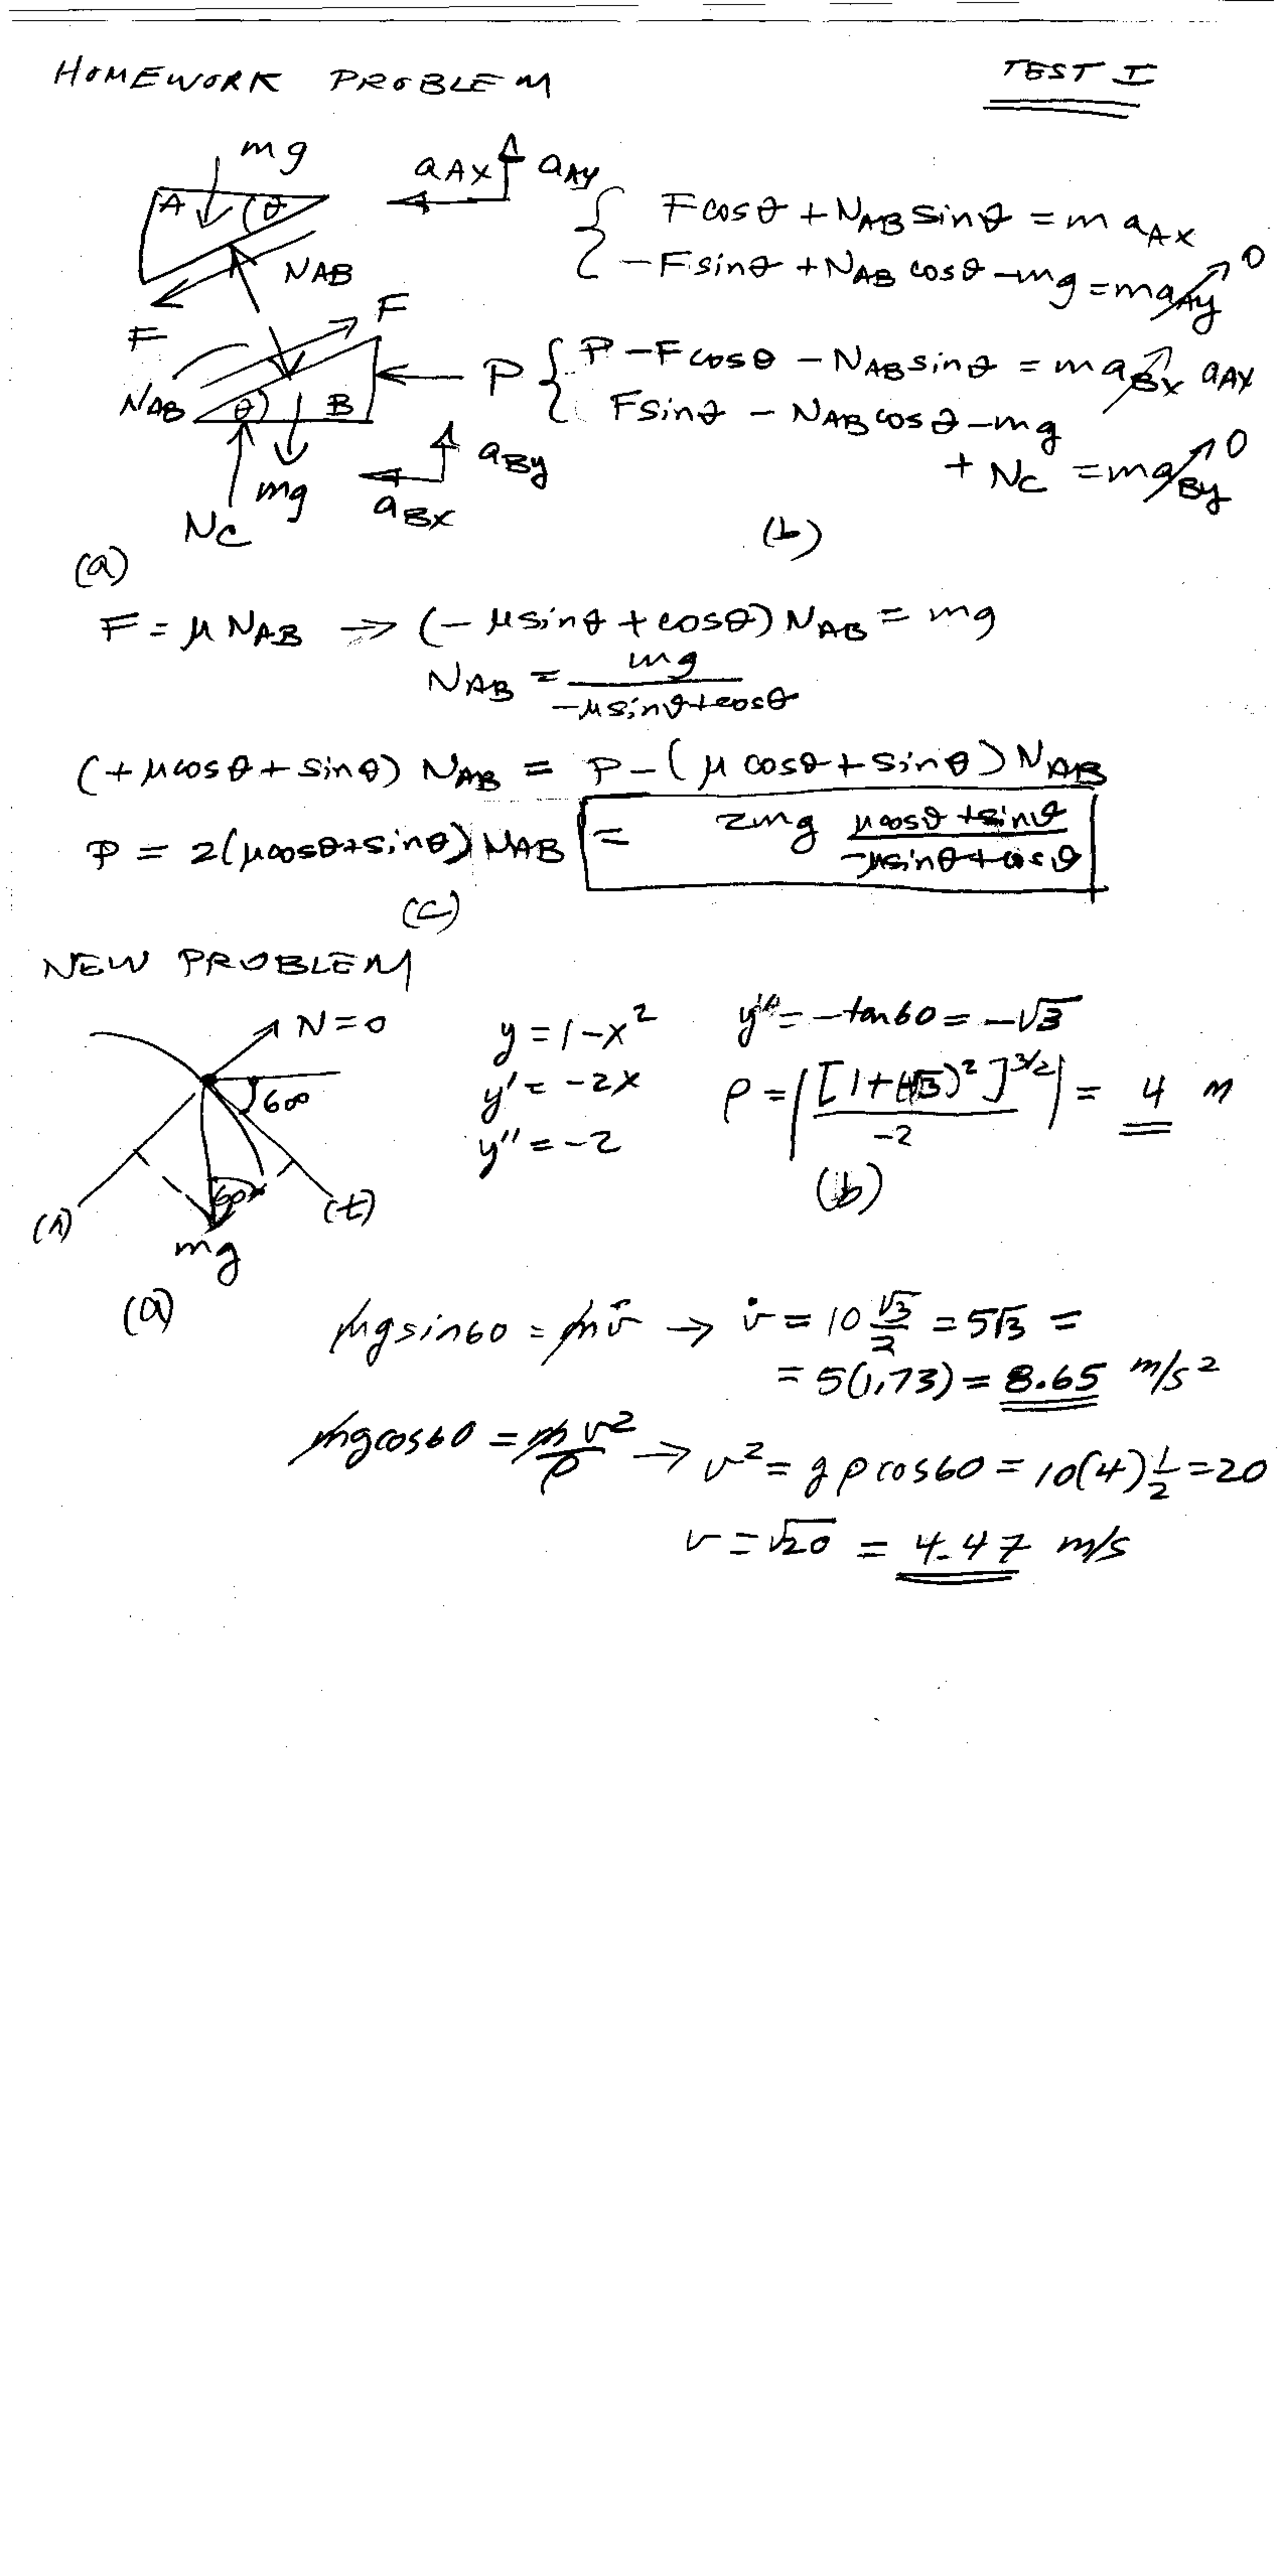 HOMEWORK PROBLEM
TEST I
mg
aAX aAy
A θ
NAB
F
Fcosθ + NAB sinθ = m aAX
-Fsinθ + NAB cosθ - mg = m aAy 0
F
NAB θ B
P
mg
NC
aBy
aBX
P - Fcosθ - NAB sinθ = m aBX aAX
Fsinθ - NAB cosθ - mg
+ NC = m aBy 0
(a)
(b)
F = μ NAB → (- μsinθ + cosθ) NAB = mg
NAB = mg / -μsinθ+cosθ
(+μcosθ + sinθ) NAB = P - (μ cosθ + sinθ) NAB
P = 2(μcosθ+sinθ) NAB = 2mg μcosθ + sinθ / -μsinθ + cosθ
(c)
NEW PROBLEM
N = 0
60°
60
(n)
(t)
mg
(a)
y = 1 - x²
y' = -2x
y'' = -2
y' = -tan60 = -√3
ρ = | [1+(√3)²]^3/2 / -2 | = 4 m
(b)
mgsin60 = m v̇ → v̇ = 10 √3/2 = 5√3 =
= 5(1.73) = 8.65 m/s²
mgcos60 = m v²/ρ → v² = g ρ cos60 = 10(4) 1/2 = 20
v = √20 = 4.47 m/s